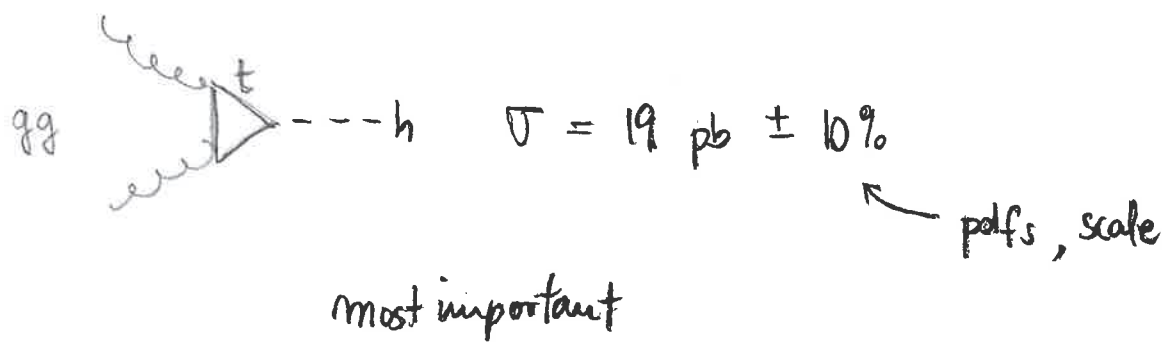 t
gg h σ = 19 pb ± 10%
pdfs, scale
most important